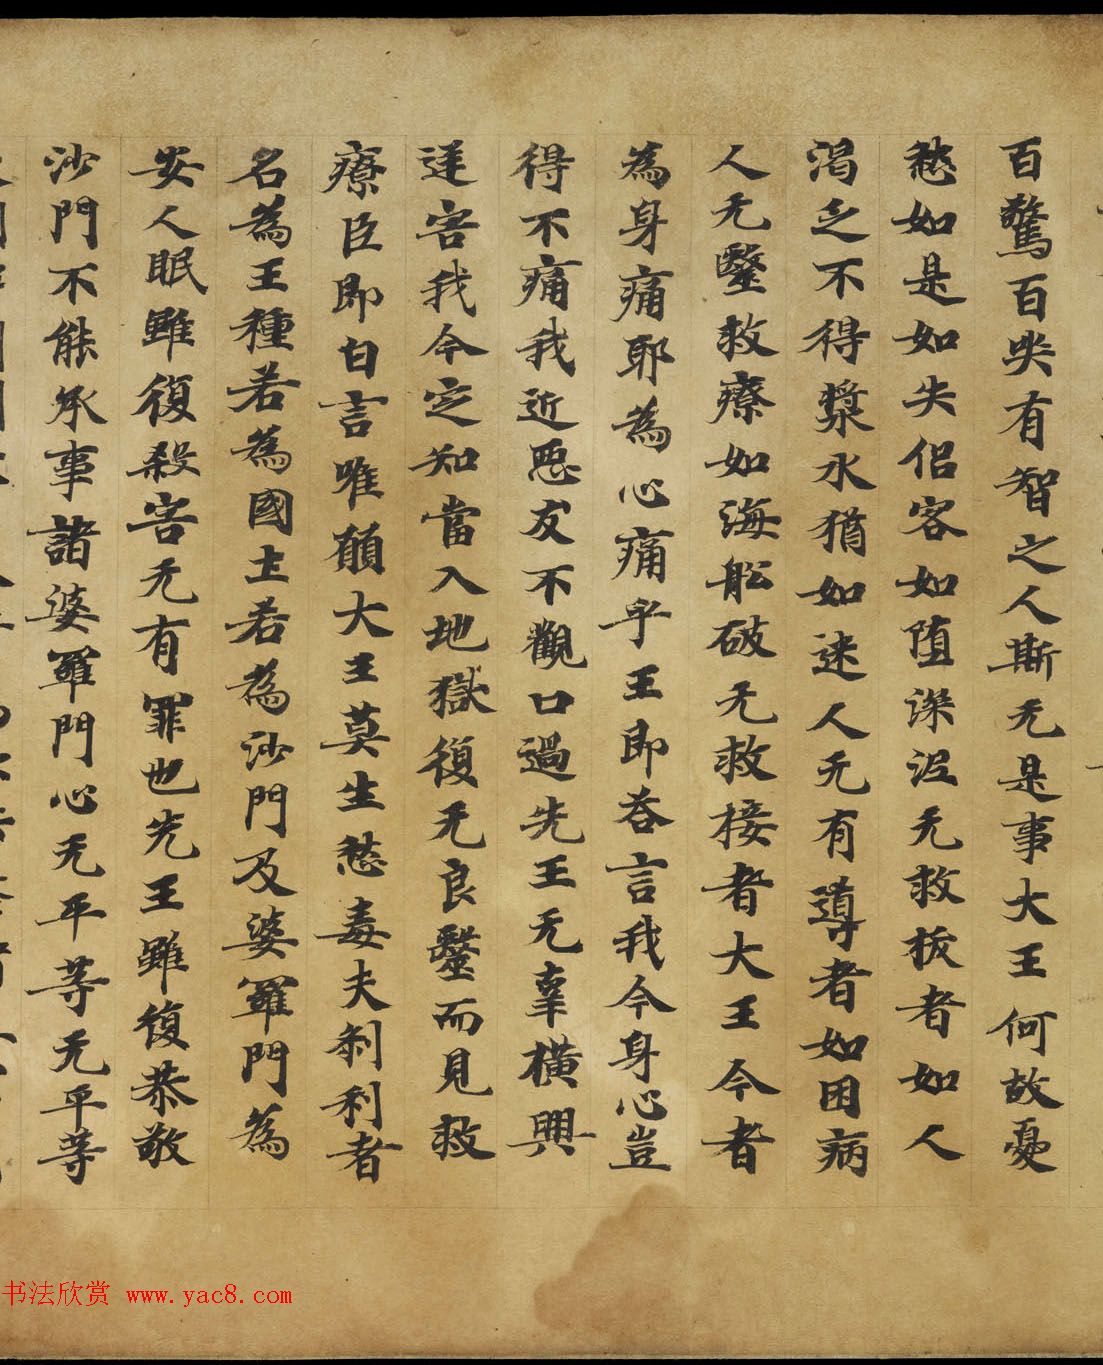 百驚百哭有智之人斯无是事大王何故憂
愁如是如失侣客如堕深泥无救拔者如人
渴乏不得漿水猶如迷人无有導者如困病
人无毉救療如海舩破无救接者大王今者
為身痛耶為心痛乎王即荅言我今身心豈
得不痛我近惡友不觀口過先王无辜橫興
逆害我今定知當入地獄復无良毉而見救
療臣即白言唯願大王莫生愁毒夫刹利者
名為王種若為國土若為沙門及婆羅門為
安人眠雖復殺害无有罪也先王雖復恭敬
沙門不能承事諸婆羅門心无平等无平等
书法欣赏 www.yac8.com